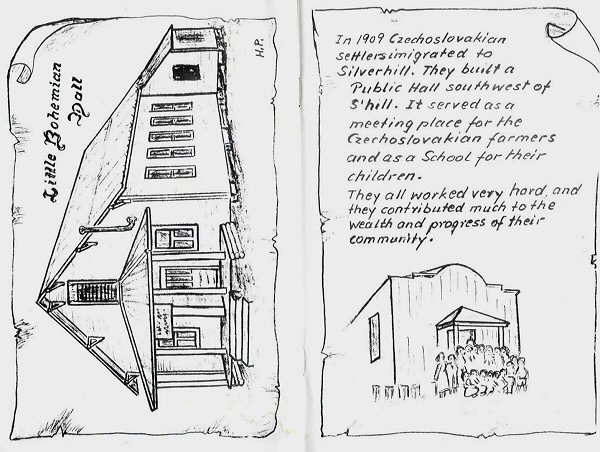 Little Bohemian
Hall
H.P.
In 1909 Czechoslovakian
settlers imigrated to
Silverhill. They built a
Public Hall southwest of
S'hill. It served as a
meeting place for the
Czechoslovakian farmers
and as a School for their
children.
They all worked very hard, and
they contributed much to the
wealth and progress of their
community.